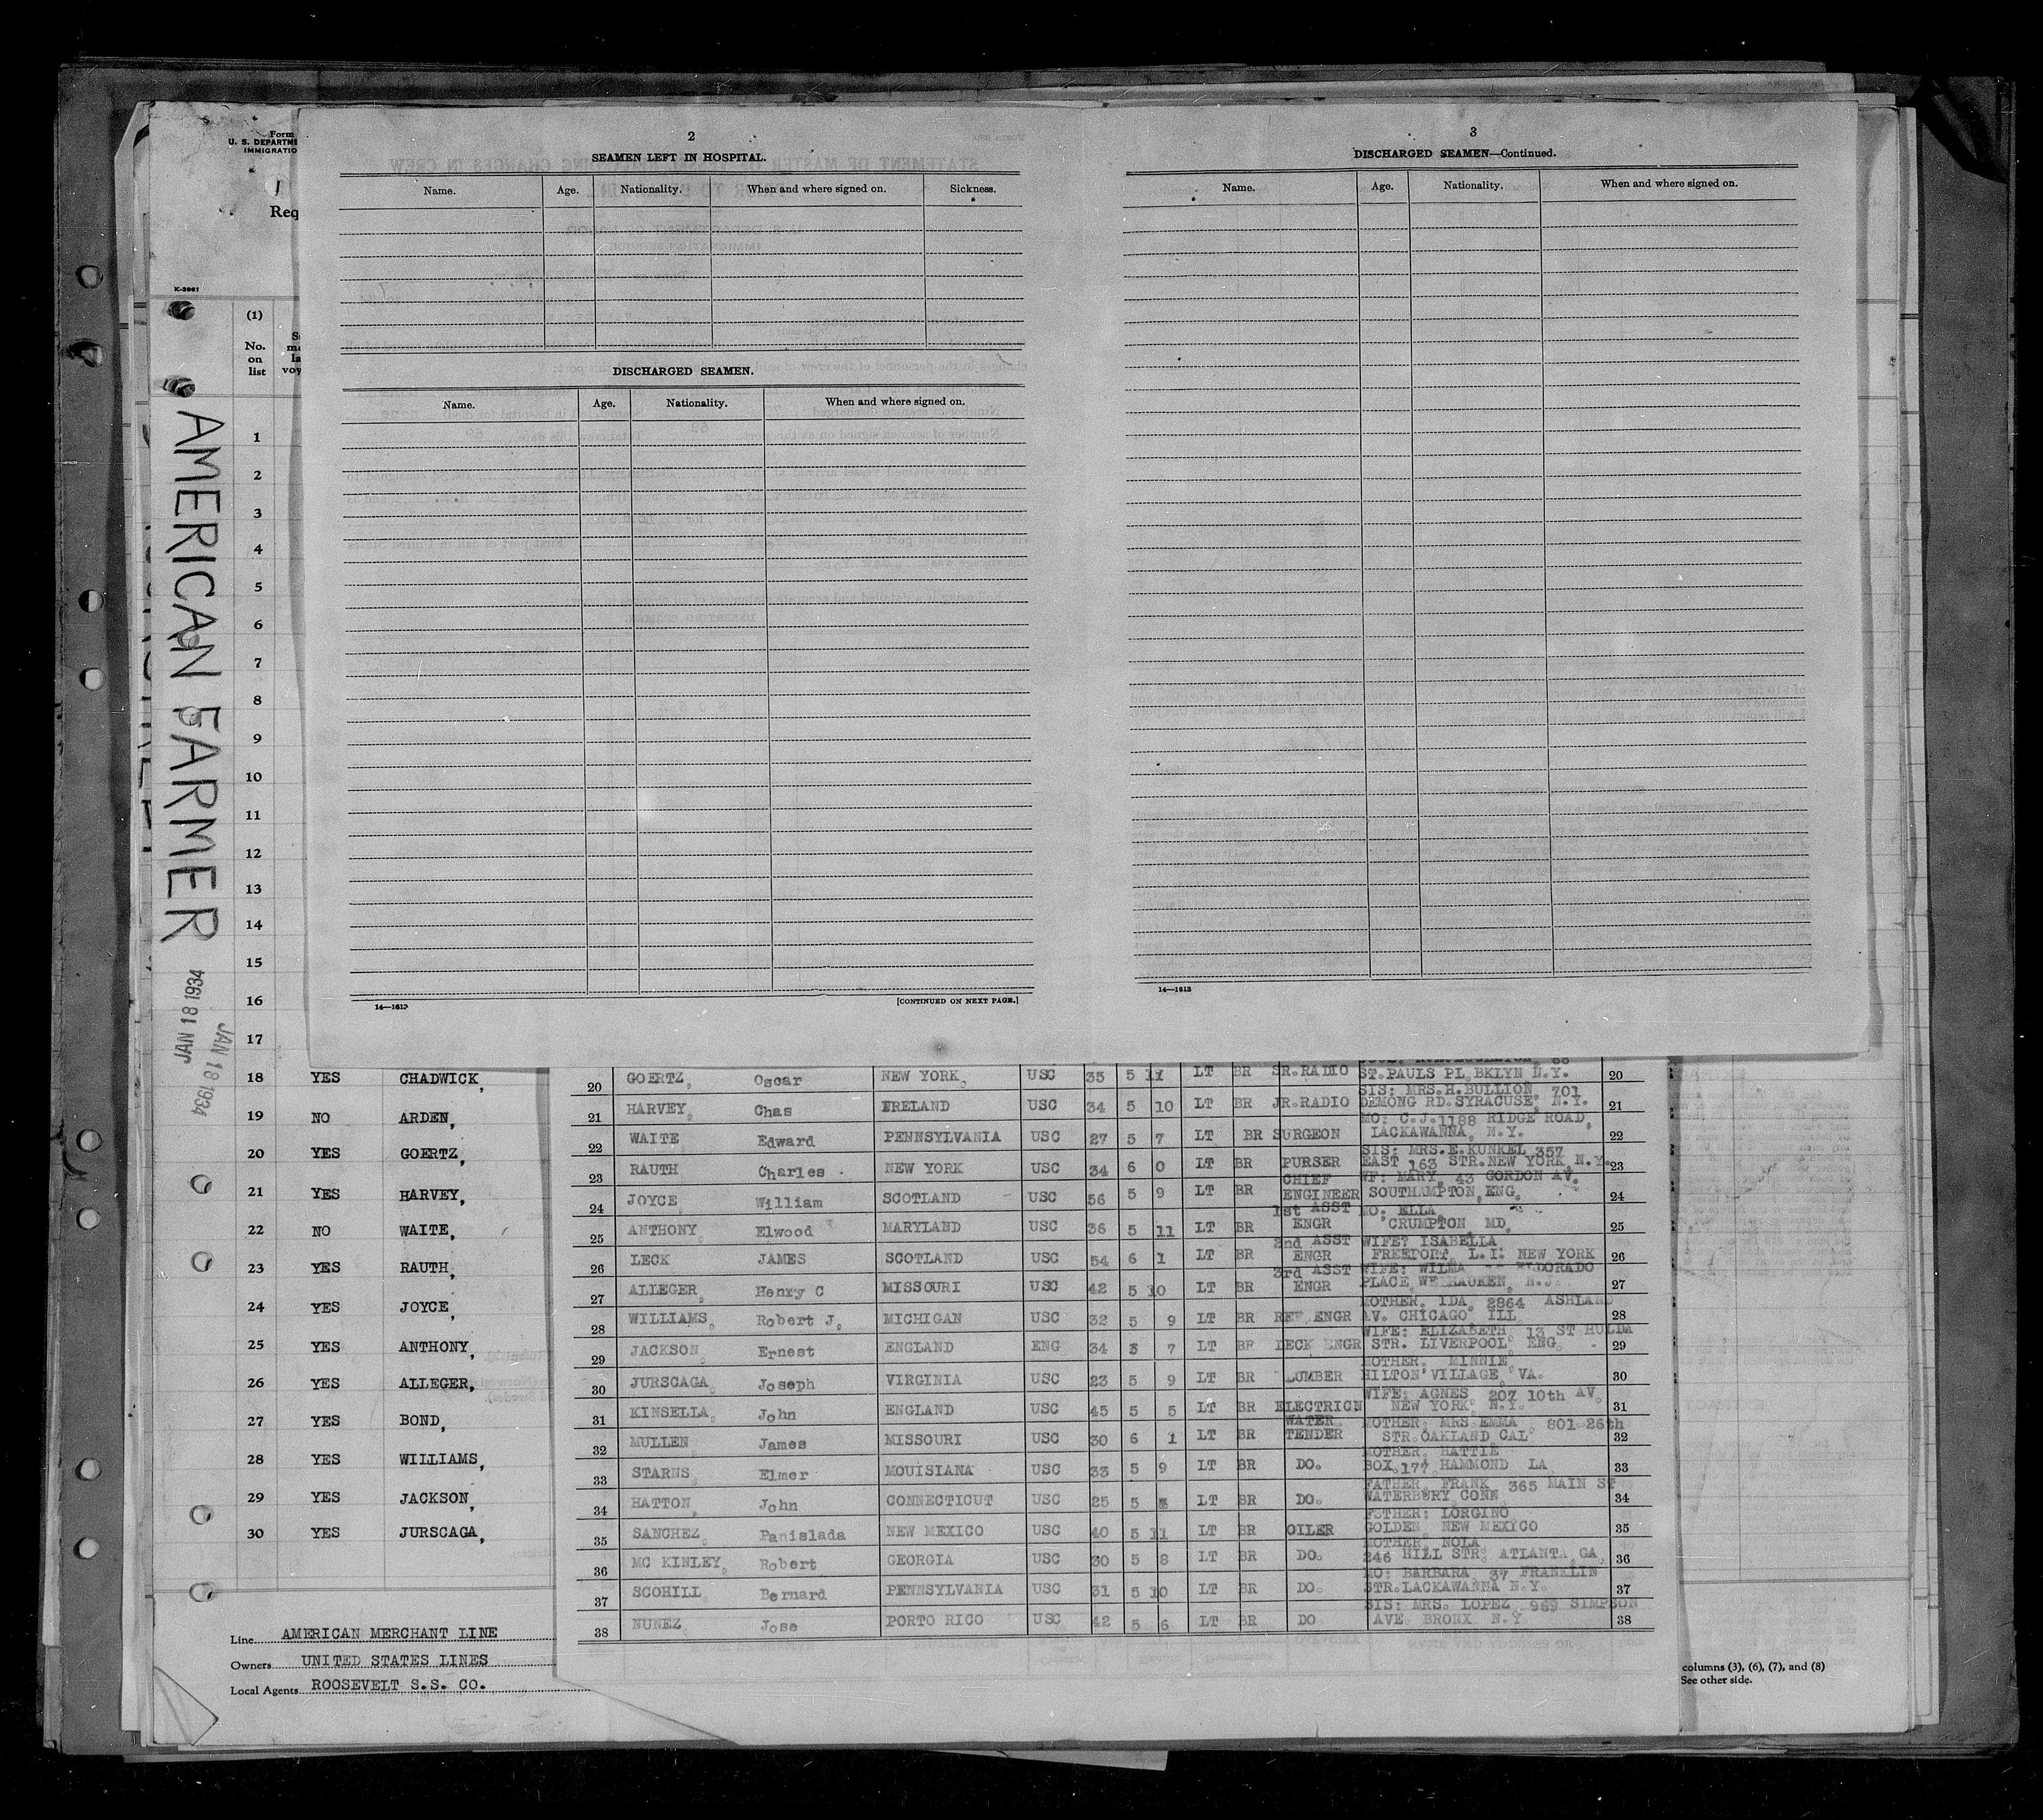 Form
U. S. DEPARTME
IMMIGRATIO
Req
K-3961
(1)
No.
on
list
AMERICAN FARMER
JAN 18 1934
JAN 18 1934
2
SEAMEN LEFT IN HOSPITAL.
Name. Age. Nationality. When and where signed on. Sickness.
DISCHARGED SEAMEN.
Name. Age. Nationality. When and where signed on.
14—1613
[CONTINUED ON NEXT PAGE.]
3
DISCHARGED SEAMEN—Continued.
Name. Age. Nationality. When and where signed on.
14—1613
1
2
3
4
5
6
7
8
9
10
11
12
13
14
15
16
17
18 YES CHADWICK,
19 NO ARDEN,
20 YES GOERTZ,
21 YES HARVEY,
22 NO WAITE,
23 YES RAUTH,
24 YES JOYCE,
25 YES ANTHONY,
26 YES ALLEGER,
27 YES BOND,
28 YES WILLIAMS,
29 YES JACKSON,
30 YES JURSCAGA,
Line AMERICAN MERCHANT LINE
Owners UNITED STATES LINES
Local Agents ROOSEVELT S.S. CO.
20 GOERTZ, Oscar NEW YORK, USC 35 5 11 LT BR SR.RADIO ST.PAULS PL BKLYN N.Y. 20
SIS: MRS.H.BULLION 701
21 HARVEY, Chas ERELAND USC 34 5 10 LT BR JR.RADIO DEMONG RD.SYRACUSE, N.Y. 21
MO: C.J.1188 RIDGE ROAD,
22 WAITE Edward PENNSYLVANIA USC 27 5 7 LT BR SURGEON LACKAWANNA, N.Y. 22
SIS: MRS.E.KUNKEL 357
23 RAUTH Charles NEW YORK USC 34 6 0 LT BR PURSER EAST 163 STR.NEW YORK N.Y. 23
CHIEF WF: MARY, 43 GORDON AV.
24 JOYCE, William SCOTLAND USC 56 5 9 LT BR ENGINEER SOUTHAMPTON,ENG. 24
1st ASST MO: ELLA,
25 ANTHONY, Elwood MARYLAND USC 36 5 11 LT BR ENGR CRUMPTON MD. 25
2nd ASST WIFE? ISABELLA
26 LECK JAMES SCOTLAND USC 54 6 1 LT BR ENGR FREEPORT, L.I. NEW YORK 26
3rd ASST WIFE: WILMA ELDORADO
27 ALLEGER, Henxy C MISSOURI USC 42 5 10 LT BR ENGR PLACE WEEHAUKEN, N.J. 27
MOTHER. IDA, 2864 ASHLAND
28 WILLIAMS, Robert J. MICHIGAN USC 32 5 9 LT BR REF ENGR AV. CHICAGO ILL 28
WIFE: ELIZABETH, 13 ST HULDA
29 JACKSON. Ernest ENGLAND ENG 34 3 7 LT BR DECK ENGR STR. LIVERPOOL, ENG. 29
MOTHER. MINNIE,
30 JURSCAGA, Joseph VIRGINIA USC 23 5 9 LT BR LUMBER HILTON VILLAGE, VA. 30
WIFE: AGNES 207 10th AV.
31 KINSELLA, John ENGLAND USC 45 5 5 LT BR ELECTRICN NEW YORK, N.Y. 31
WATER MOTHER: MRS EMMA 801 26th
32 MULLEN, James MISSOURI USC 30 6 1 LT BR TENDER STR.OAKLAND CAL 32
MOTHER. HATTIE
33 STARNS, Elmer MOUISIANA USC 33 5 9 LT BR DO. BOX.177 HAMMOND LA 33
FATHER, FRANK 365 MAIN ST
34 HATTON, John CONNECTICUT USC 25 5 LT BR DO. WATERBURY CONN 34
FOTHER: LORGINO,
35 SANCHEZ, Panislada NEW MEXICO USC 40 5 11 LT BR OILER GOLDEN, NEW MEXICO 35
MOTHER, NOLA
36 MC KINLEY, Robert GEORGIA USC 30 5 8 LT BR DO. 246 HILL STR. ATLANTA,GA, 36
MO: BARBARA, 37 FRANKLIN
37 SCOHILL, Bernard PENNSYLVANIA USC 31 5 10 LT BR DO. STR.LACKAWANNA N.Y. 37
SIS: MRS. LOPEZ 969 SIMPSON
38 NUNEZ, Jose PORTO RICO USC 42 5 6 LT BR DO AVE BRONX N.Y 38
columns (3), (6), (7), and (8)
See other side.